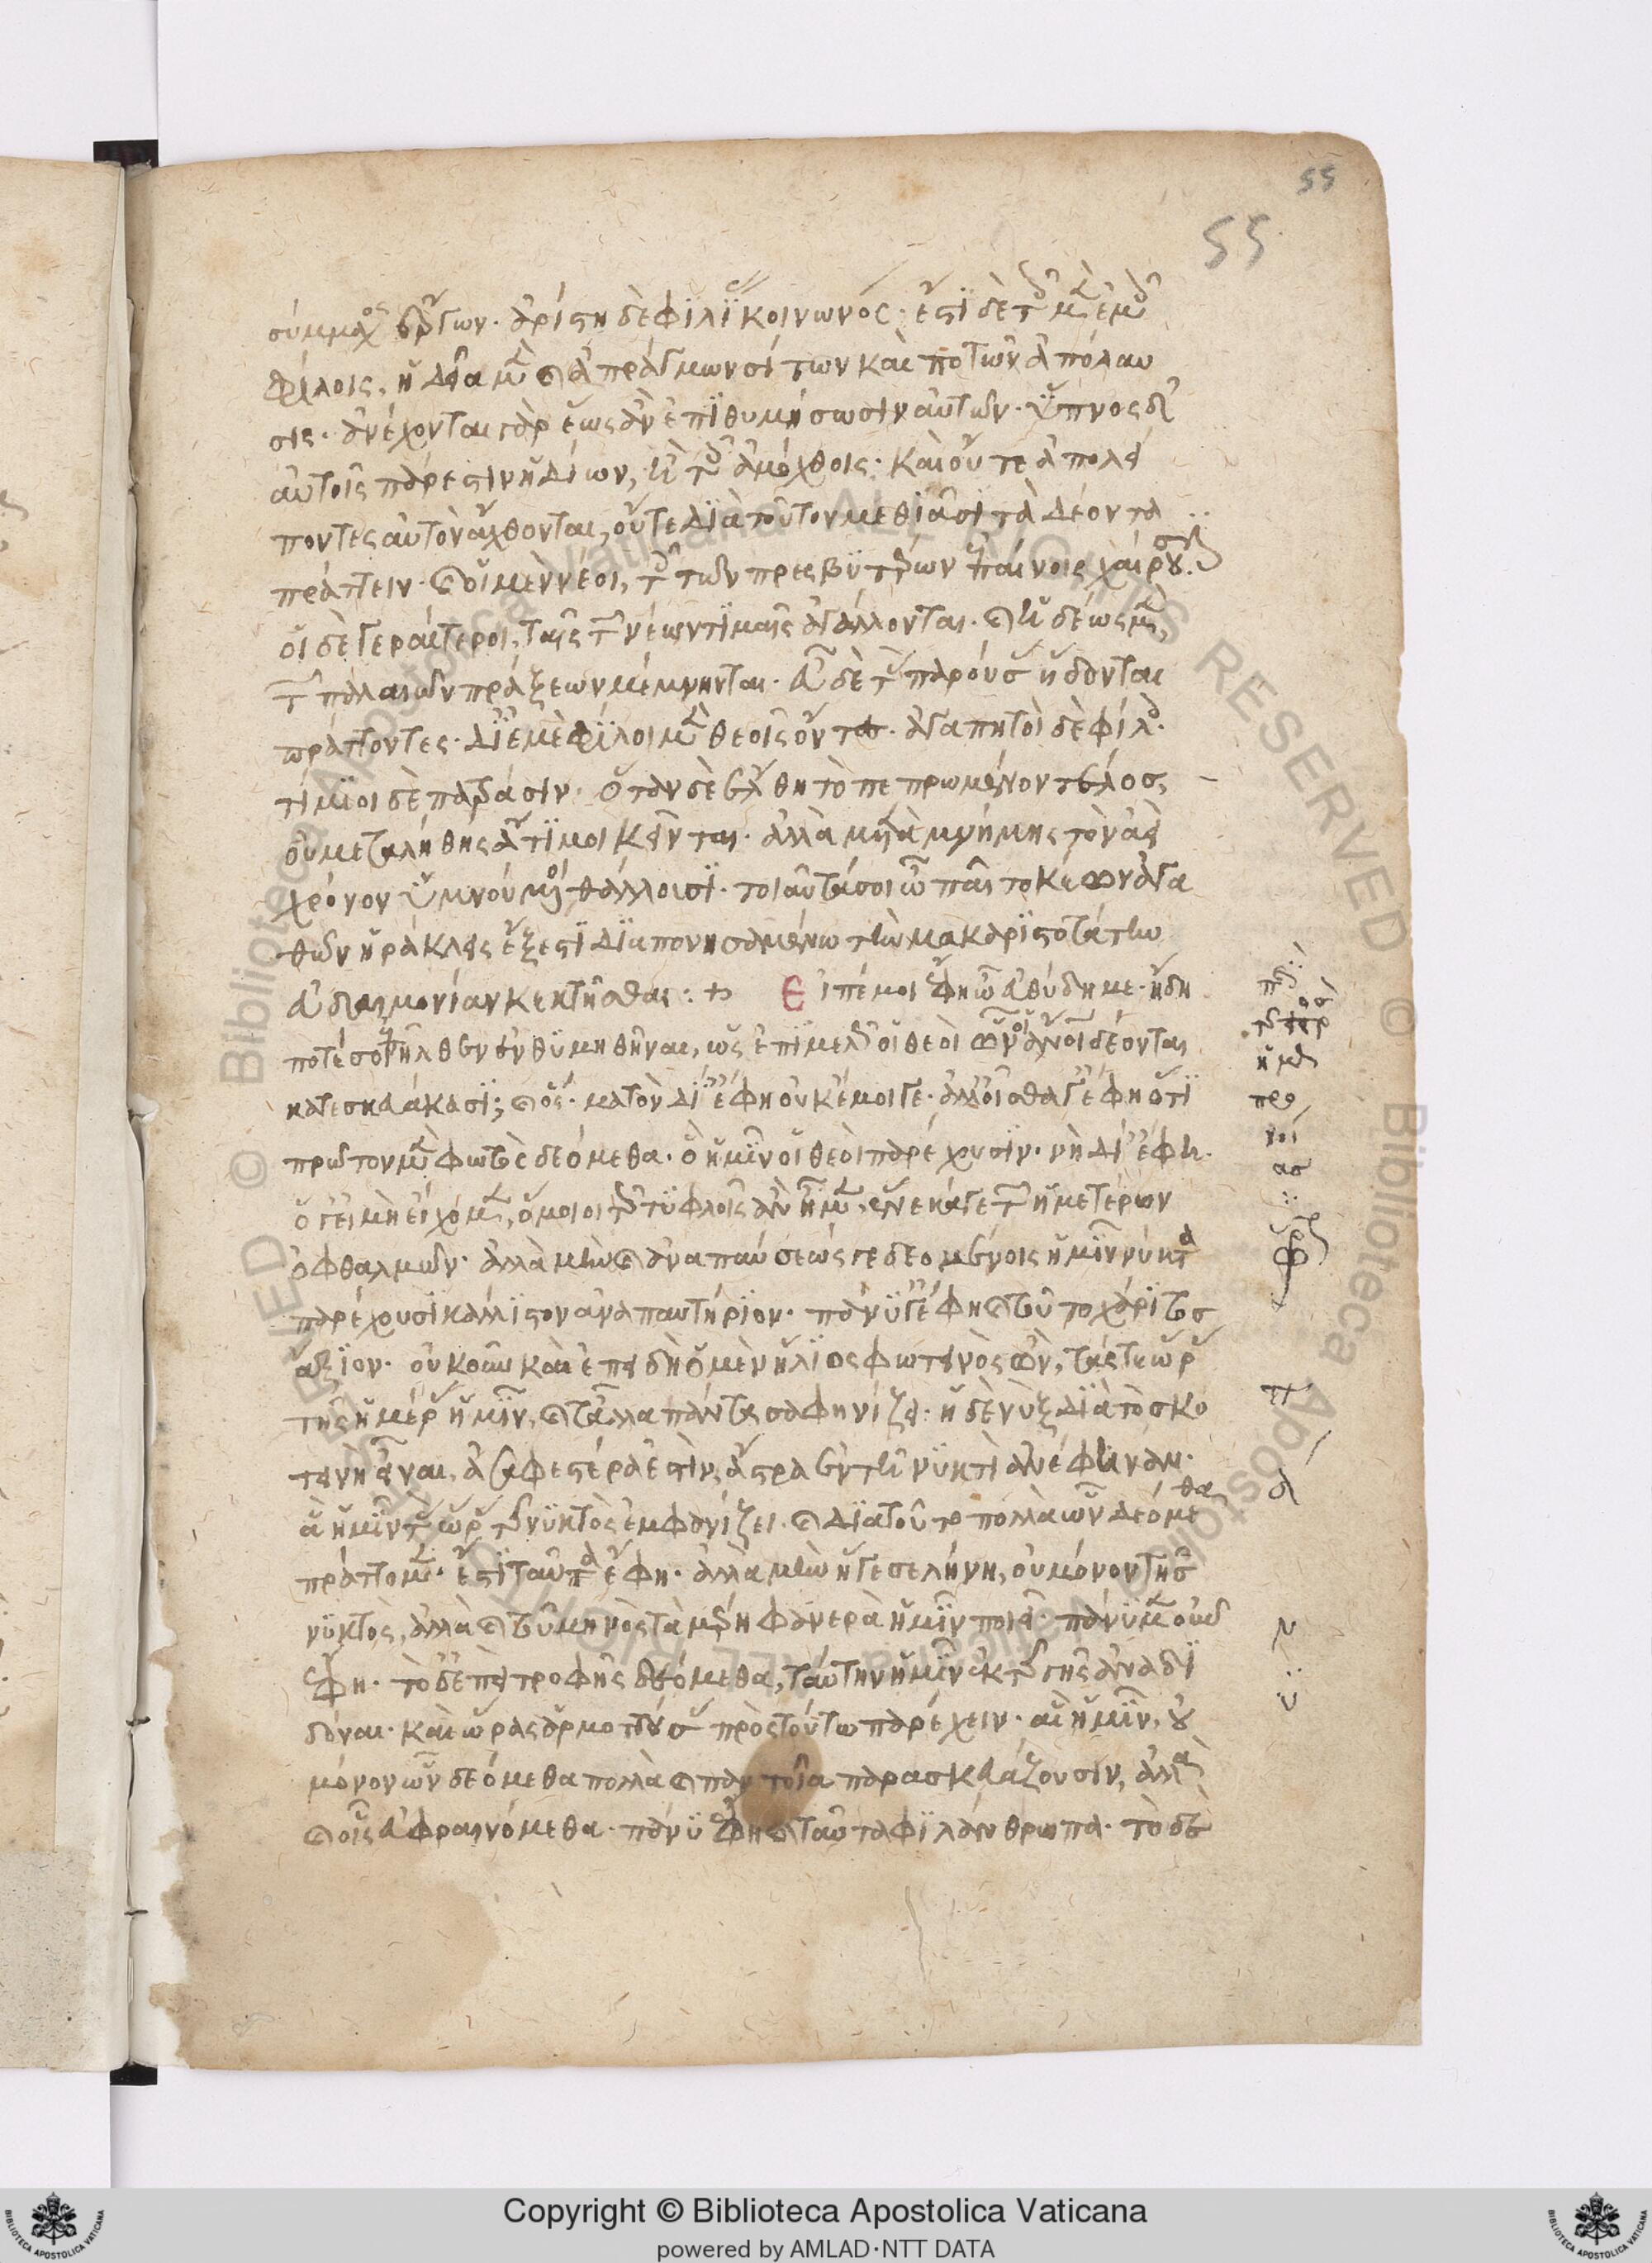 55
55
σύμμαχος ἔργων· ἀρίστη δὲ φιλίας κοινωνός· ἔστι δὲ τοῖς μὲν ἐμοῖς
φίλοις, ἡδεῖα μὲν καὶ ἀπράγμων σίτων καὶ ποτῶν ἀπόλαυ
σις· ἀνέχονται γὰρ ἕως ἂν ἐπιθυμήσωσιν αὐτῶν· ὕπνος δ'
αὐτοῖς πάρεστιν ἡδίων, ἢ τοῖς ἀμόχθοις· καὶ οὔτε ἀπολεί
ποντες αὐτὸν ἄχθονται, οὔτε διὰ τοῦτον μεθιᾶσι τὰ δέοντα
πράττειν· καὶ οἱ μὲν νέοι, τοῖς τῶν πρεσβυτέρων ἐπαίνοις χαίρουσιν·
οἱ δὲ γεραίτεροι, ταῖς τῶν νέων τιμαῖς ἀγάλλονται· καὶ ἡδέως μὲν,
τῶν παλαιῶν πράξεων μέμνηνται· εὖ δὲ τὰς παρούσας ἥδονται
πράττοντες· δι' ἐμὲ φίλοι μὲν θεοῖς ὄντες· ἀγαπητοὶ δὲ φίλοις·
τίμιοι δὲ πατράσιν· ὅταν δὲ ἔλθη τὸ πεπρωμένον τέλος
οὐ μετὰ λήθης ἄτιμοι κεῖνται· ἀλλὰ μετὰ μνήμης τὸν ἀεὶ
χρόνον ὑμνούμενοι θάλλουσι· τοιαῦτά σοι ὦ παῖ τοκέων ἀγα
θῶν ἡράκλεις ἔξεστι διαπονησαμένω τὴν μακαριστοτάτην
εὐδαιμονίαν κεκτῆσθαι :+ Εἰπέ μοι ἔφη ὦ εὐθύδημε· ἤδη
ποτέ σοι ἐπῆλθεν ἐνθυμηθῆναι, ὡς ἐπιμελῶς οἱ θεοὶ ὧν οἱ ἄνθρωποι δέονται
κατεσκευάκασι; καὶ ὅς· μὰ τὸν δί' ἔφη οὐκ ἔμοιγε· ἀλλ' οἶσθά γ' ἔφη ὅτι
πρῶτον μὲν φωτὸς δεόμεθα· ὃ ἡμῖν οἱ θεοὶ παρέχουσιν· νὴ δί' ἔφη·
ὅ γ' εἰ μὴ εἴχομεν, ὅμοιοι τοῖς τυφλοῖς ἂν ἦμεν, ἕνεκά γε τῶν ἡμετέρων
ὀφθαλμῶν· ἀλλὰ μὴν καὶ ἀναπαύσεώς γε δεομένοις ἡμῖν νύκτα
παρέχουσι κάλλιστον ἀναπαυτήριον· πάνυ γ' ἔφη καὶ τοῦτο χάριτος
ἄξιον· οὐκοῦν καὶ ἐπειδὴ ὁ μὲν ἥλιος φωτεινὸς ὢν, τάς τε ὥρας
τῆς ἡμέρας ἡμῖν, καὶ τἆλλα πάντα σαφηνίζει· ἡ δὲ νὺξ διὰ τὸ σκο
τεινὴ εἶναι, ἀσαφεστέρα ἐστὶν, ἄστρα ἐν τῆ νυκτὶ ἀνέφηναν·
ἃ ἡμῖν τὰς ὥρας τῆς νυκτὸς ἐμφανίζει· καὶ διὰ τοῦτο πολλὰ ὧν δεόμεθα
πράττομεν· ἔστι ταῦτα ἔφη· ἀλλὰ μὴν ἥ γε σελήνη, οὐ μόνον τῆς
νυκτὸς, ἀλλὰ καὶ τοῦ μηνὸς τὰ μέρη φανερὰ ἡμῖν ποιεῖ· πάνυ μὲν οὖν
ἔφη· τὸ δ' ἐπεὶ τροφῆς δεόμεθα, ταύτην ἡμῖν ἐκ τῆς γῆς ἀναδι
δόναι· καὶ ὥρας ἁρμοττούσας πρὸς τοῦτο παρέχειν· αἳ ἡμῖν, οὐ
μόνον ὧν δεόμεθα πολλὰ καὶ παντοῖα παρασκευάζουσιν, ἀλλὰ
καὶ οἷς εὐφραινόμεθα· πάνυ ἔφη καὶ ταῦτα φιλάνθρωπα· τὸ δὲ
Copyright © Biblioteca Apostolica Vaticana
powered by AMLAD·NTT DATA